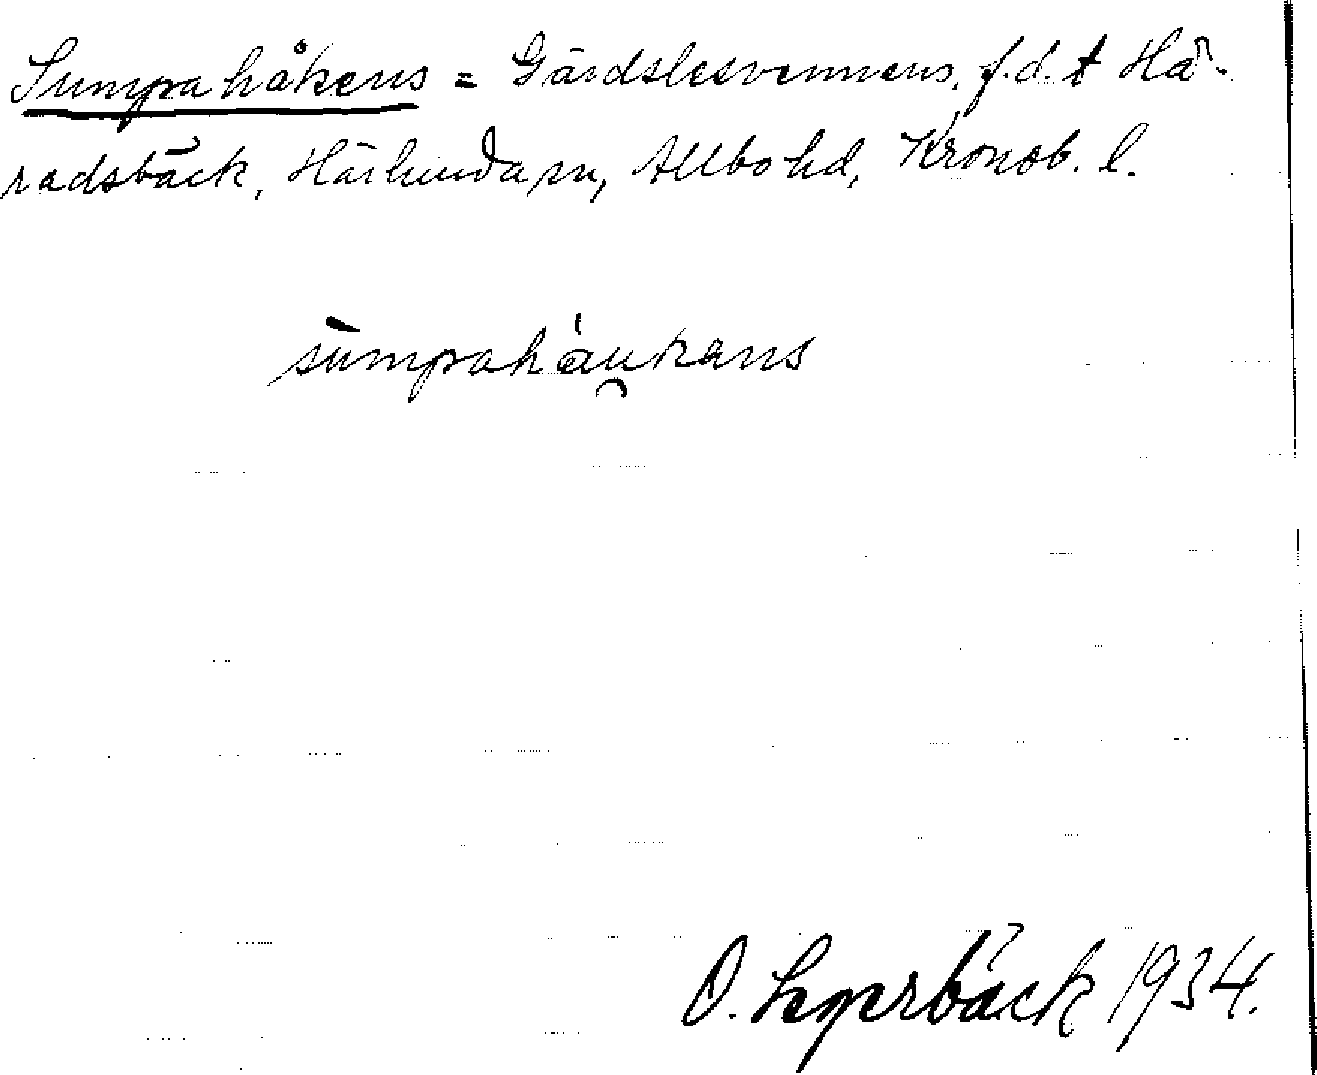 Sumpahåkens = Gärdslesvennens, f.d. t Hä-
radsbäck, Härlunda sn, Allbo hd, Kronob. l.
sùmpaháu̯kans
O. Lyerbäck 1934.